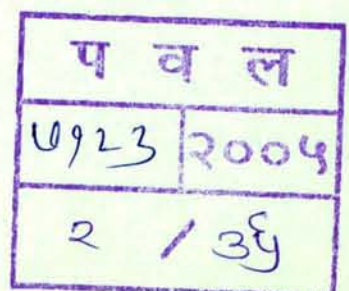 प व ल
७१२३ २००५
२ / ३६